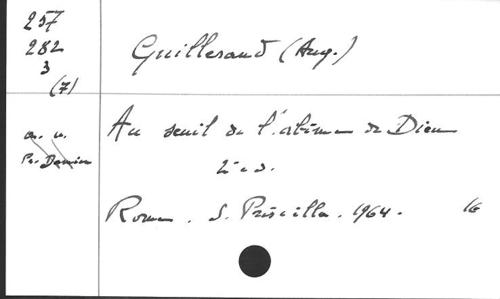 257
282
3
(7)
Guillerand (Aug.)
Au seuil de l'abîme de Dieu
2e ed.
Roma. S. Priscilla. 1964. 16
Pr. Damien